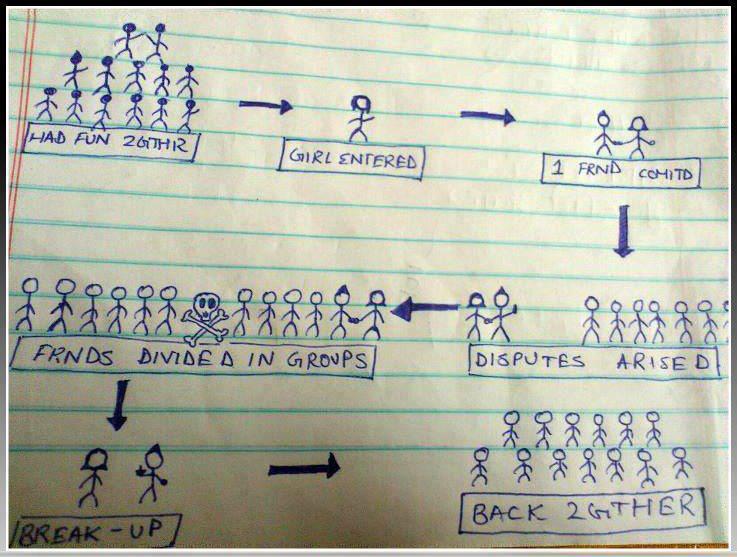 HAD FUN 2GTHIR
GIRL ENTERED
1 FRND COMITD
DISPUTES ARISED
FRNDS DIVIDED IN GROUPS
BREAK-UP
BACK 2GTHER